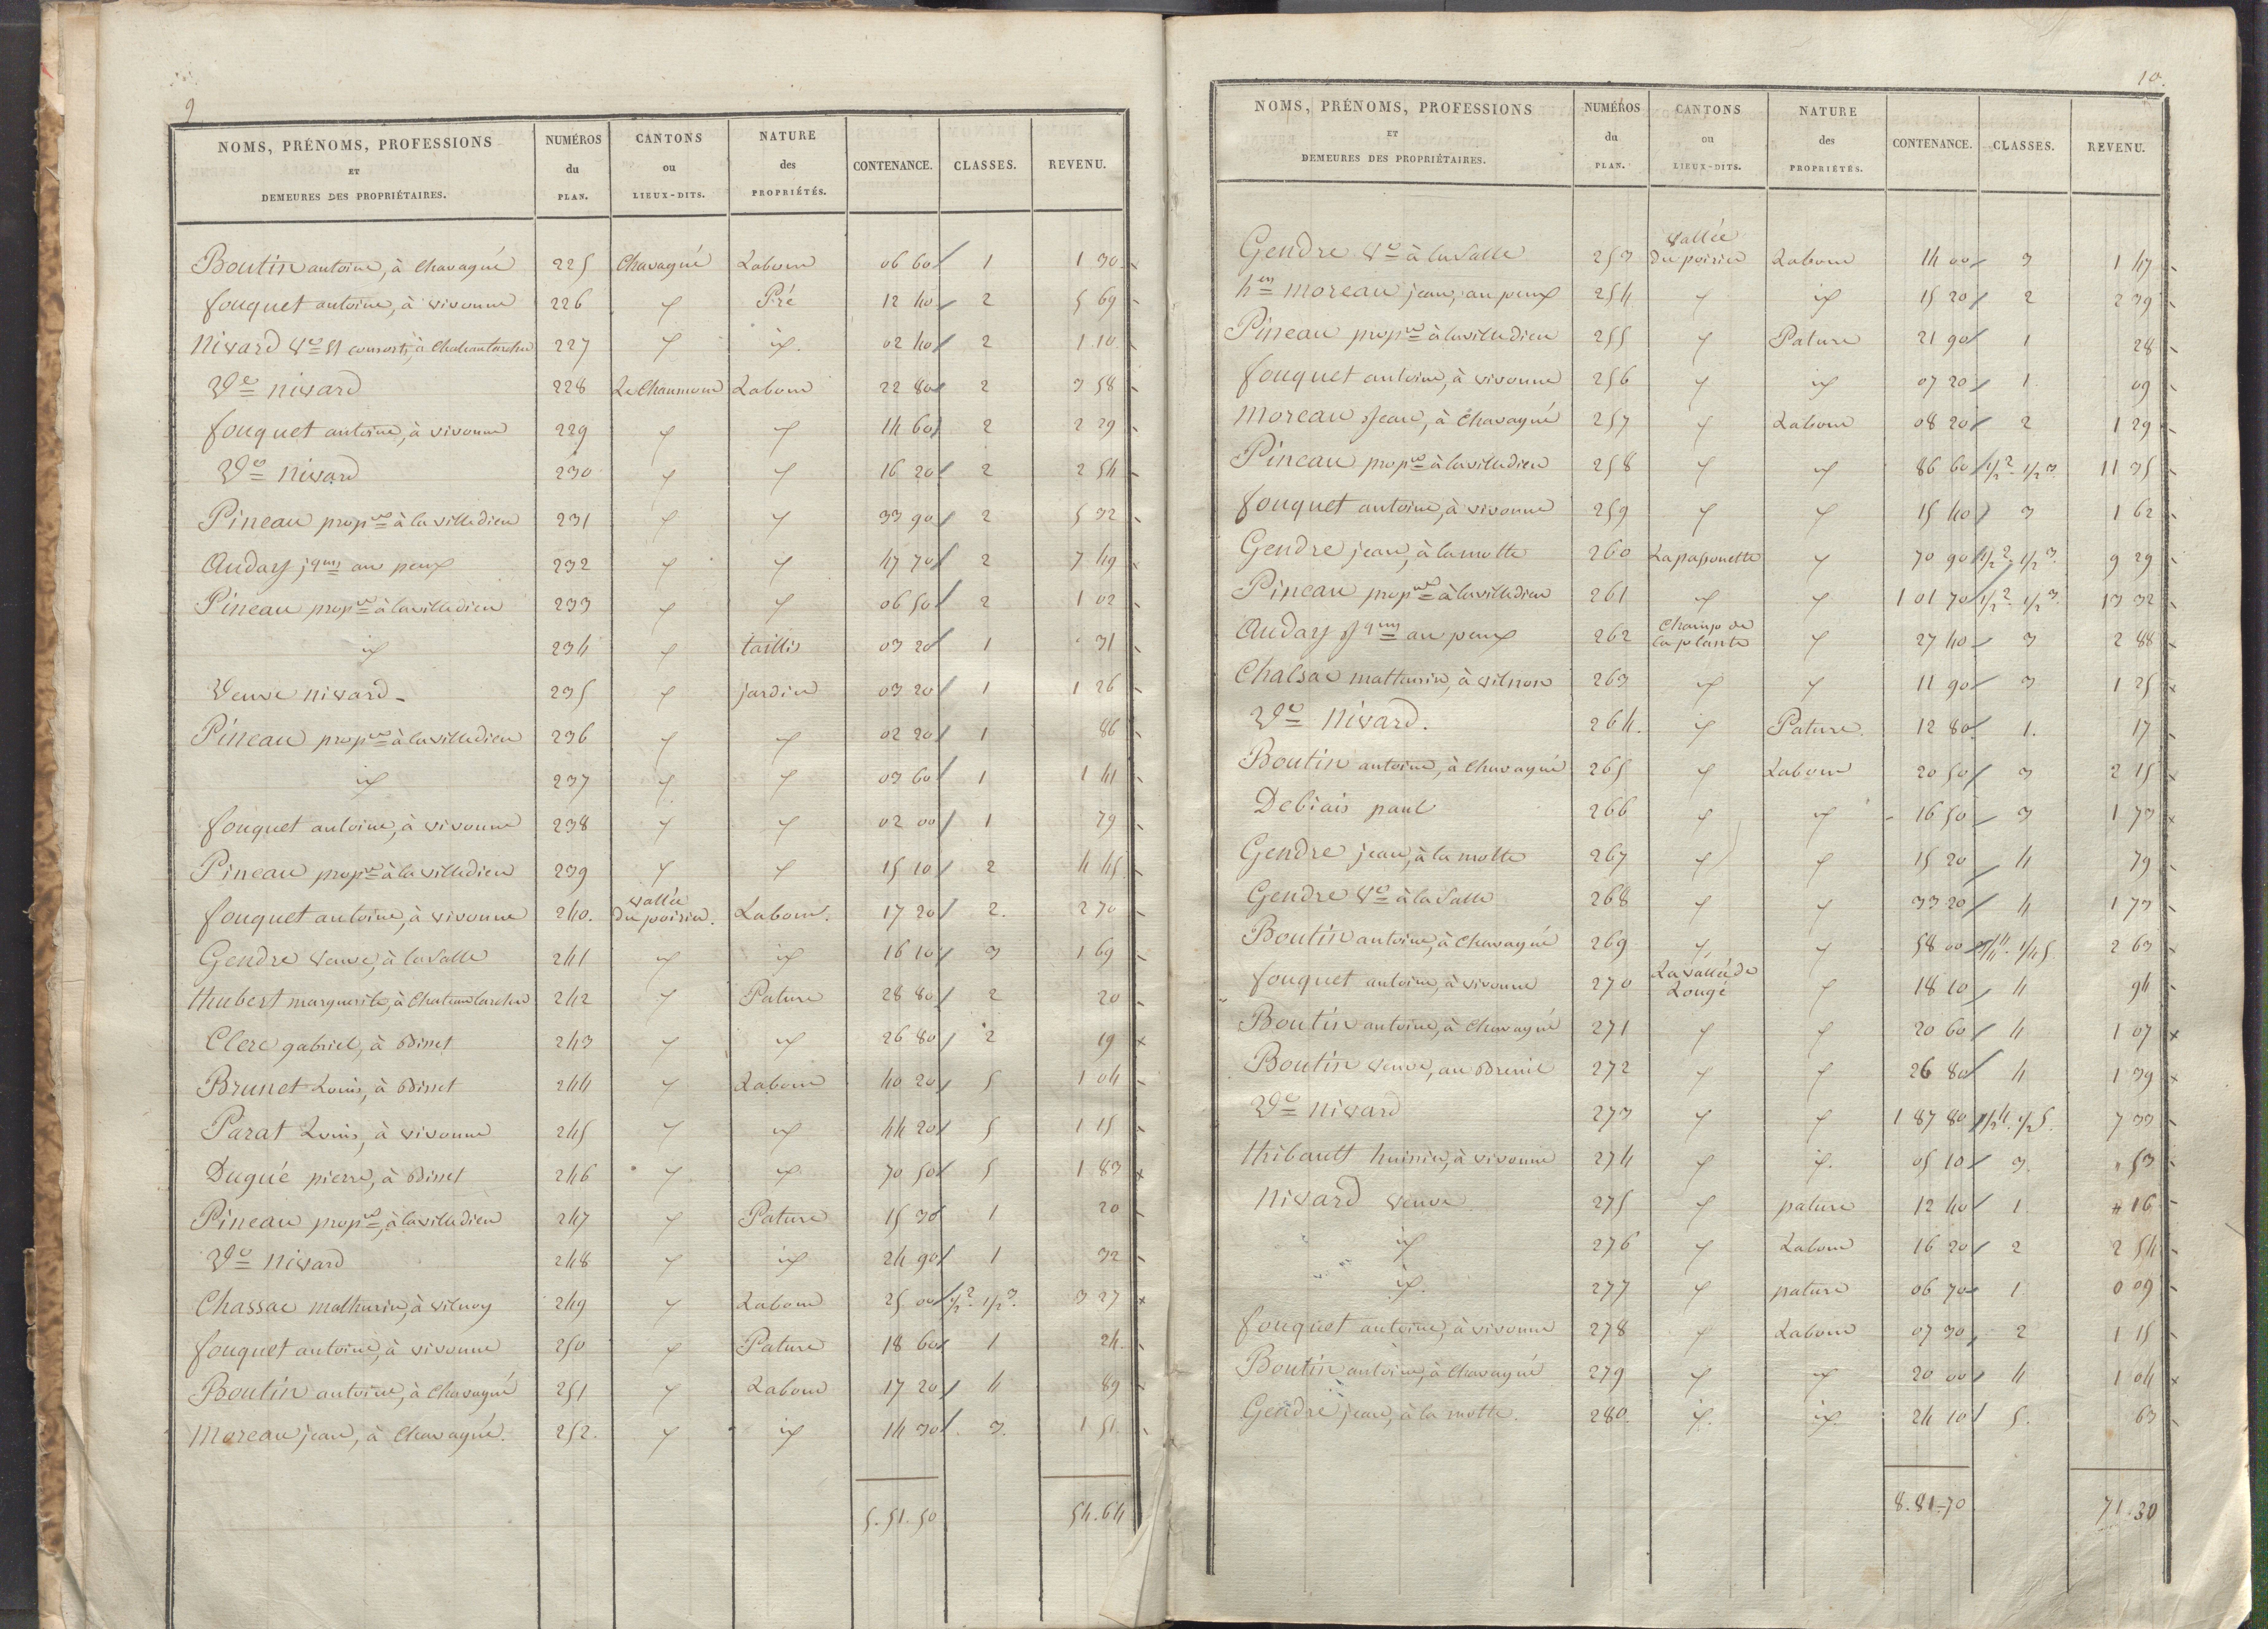 9
NOMS, PRÉNOMS, PROFESSIONS ET DEMEURES DES PROPRIÉTAIRES. NUMÉROS du PLAN. CANTONS ou LIEUX-DITS. NATURE des PROPRIÉTÉS. CONTENANCE. CLASSES. REVENU.
Boutin antoine, à Chavagné 225 Chavagné Labour 06 60 1 1 30
fouquet antoine, à vivonne 226 Pré 12 40 2 5 69
Nivard Ve et consorts, à Chateaularcher 227 id. 02 40 2 1 10
Ve nivard 228 Le Chaumour Labour 22 80 2 3 58
fouquet antoine, à vivonne 229 14 60 2 2 29
Ve nivard 230 16 20 2 2 54
Pineau propre à la villedieu 231 33 90 2 5 32
Auday jques au peux 232 47 70 2 7 49
Pineau propre à la villedieu 233 06 50 2 1 02
id 234 taillis 03 20 1 31
Veuve nivard 235 jardin 03 20 1 1 26
Pineau propre à la villedieu 236 02 20 1 86
id 237 03 60 1 1 41
fouquet antoine, à vivonne 238 02 00 1 79
Pineau propre à la villedieu 239 15 10 2 4 45
fouquet antoine, à vivonne 240. vallée du poirier. Labour. 17 20 2. 2 70
Gendre veuve, à la Salle 241 id id 16 10 3 1 69
Hubert marguerite, à Chateaularcher 242 Pature 28 80 2 20
Clerc gabriel, à Bisset 243 id 26 80 2 19
Brunet Louis, à Bisset 244 Labour 40 20 5 1 04
Parat Louis, à vivonne 245 id 44 20 5 1 15
Dugué pierre, à Bisset 246 id 70 50 5 1 83
Pineau propre, à la villedieu 247 Pature 15 30 1 20
Ve nivard 248 id 24 90 1 32
Chassac mathurin, à vilnoy 249 Labour 25 00 1/2 2. 1/2 3. 3 27
fouquet antoine, à vivonne 250 Pature 18 60 1 24.
Boutin antoine, à Chavagné 251 Labour 17 20 4 89
Moreau jean, à Chavagné. 252. id 14 30 3. 1 51.
5.51.50 54.64
10.
NOMS, PRÉNOMS, PROFESSIONS ET DEMEURES DES PROPRIÉTAIRES. NUMÉROS du PLAN. CANTONS ou LIEUX-DITS. NATURE des PROPRIÉTÉS. CONTENANCE. CLASSES. REVENU.
Gendre Ve à la Salle 253 vallée du poirier Labour 14 00 3 1 47
moreau jean, au peux 254 id 15 20 2 2 39
Pineau propre à la villedieu 255 Pature 21 90 1 28
fouquet antoine, à vivonne 256 id 07 20 1 09
Moreau Jean, à Chavagné 257 Labour 08 20 2 1 29
Pineau propre à la villedieu 258 86 60 1/2 2. 1/2 3. 11 35
fouquet antoine, à vivonne 259 15 40 3 1 62
Gendre jean, à la motte 260 Lapassonette 70 90 1/2 2. 1/2 3. 9 29
Pineau propre à la villedieu 261 id 1 01 70 1/2 2. 1/2 3. 13 32
Auday Jques au peux 262 Champ de la plante 27 40 3 2 88
Chalsac mathurin, à vilnon 263 id 11 90 3 1 25
Ve Nivard. 264. id Pature. 12 80. 1. 17
Boutin antoine, à Chavagné 265 Labour 20 50 3 2 15
Debiais paul 266 id 16 50 3 1 73
Gendre jean, à la motte 267 15 20 4 79
Gendre Ve à la Salle 268 33 20 4 1 73
Boutin antoine, à Chavagné 269 58 00 3/4 4. 1/4 5. 2 63
fouquet antoine, à vivonne 270 La vallée de Rougé 18 10 4 94
Boutin antoine, à Chavagné 271 20 60 4 1 07
Boutin veuve, au Breuil 272 26 80 4 1 39
Ve Nivard 273 1 87 80 1/2 4. 1/2 5. 7 33
thibault huissier, à vivonne 274 id. 05 10 3. 53
Nivard veuve 275 pature 12 40 1. 16
id 276 Labour 16 20 2 2 54
id. 277 pature 06 70 1 0 09
fouquet antoine, à vivonne 278 Labour 07 30 2 1 15
Boutin antoine, à Chavagné 279 id 20 00 4 1 04
Gendre jean, à la motte. 280. id. id. 24 10 5. 63
8.81.70 71.30